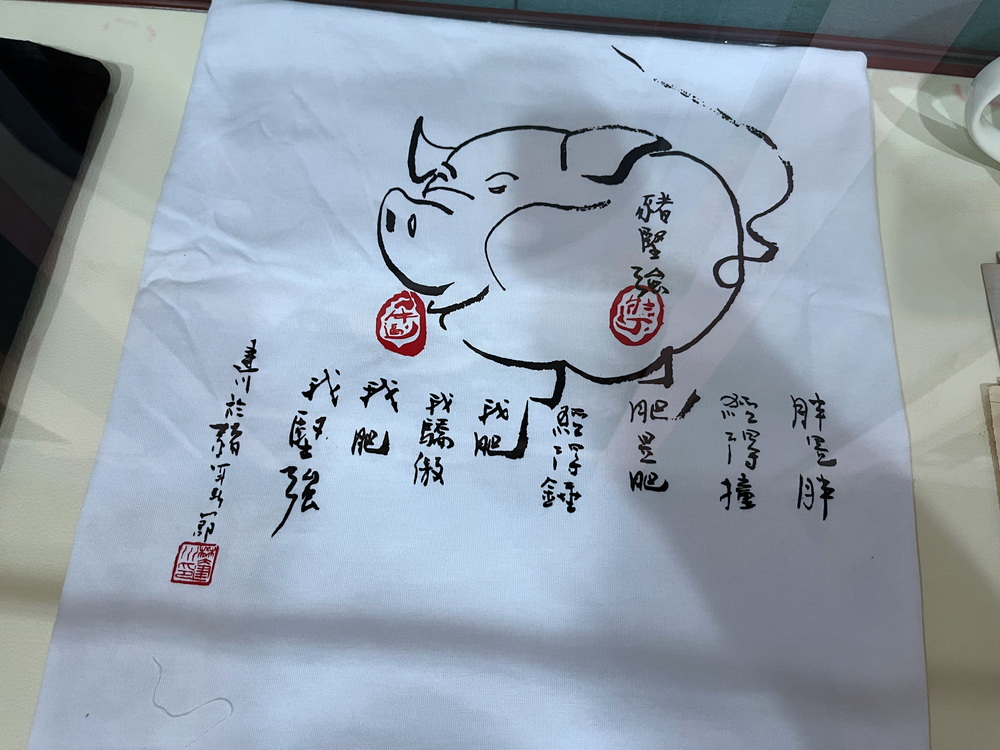 豬堅強
胖是胖
經得撞
肥是肥
經得錘
我肥
我驕傲
我肥
我堅強
建川於豬
樊建川印